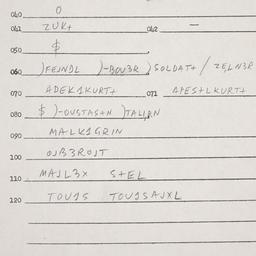 040 0
041 ZUK+ 042 —
050 $
060 )FEJNDL )-BOV3R )SOLDAT+ / ZELN3R
070 ADEK1KURT+ 071 APEST+LKURT+
080 $ )-OUSTAS+N )TALJ3N
090 MALK1GRIN
100 OJB3ROJT
110 MAJL3X S+EL
120 TOV1S TOV1SAJXL